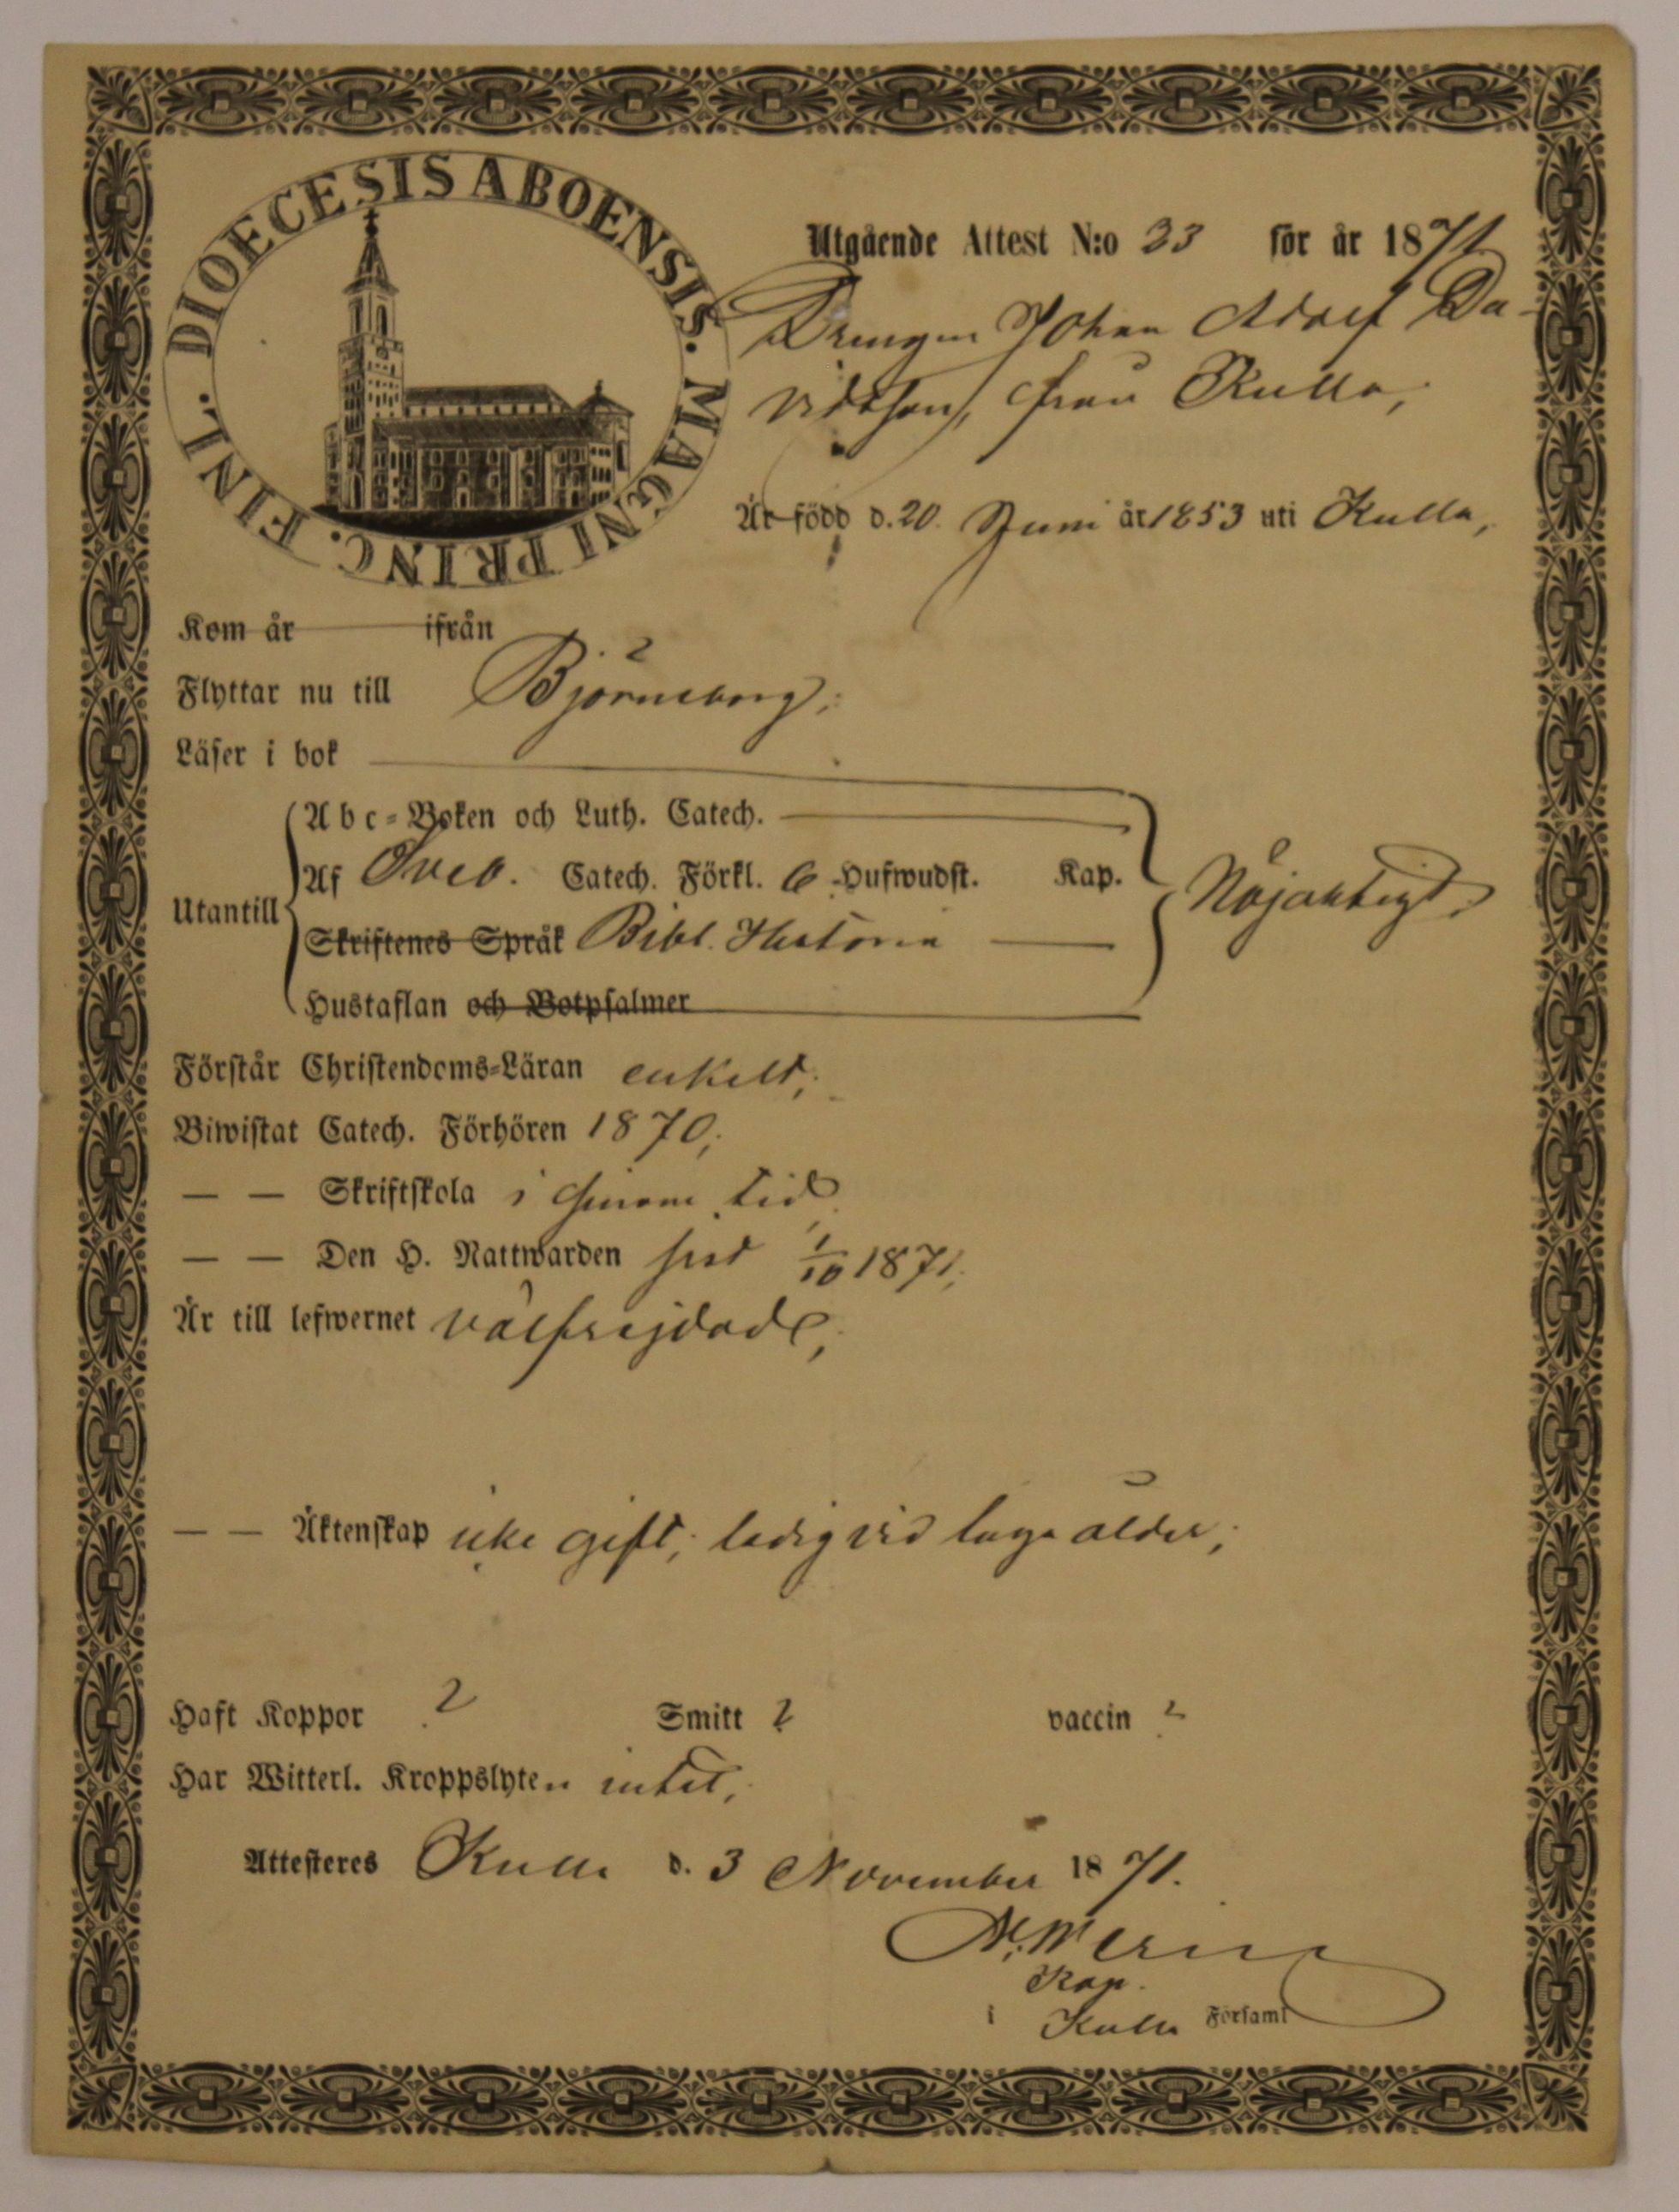 DIOECESIS ABOENSIS. MAGNI PRINC. FINL.
Utgående Attest N:o 33 för år 1871
Drengen Johan Adolf Da-
vidsson, från Kulla,
Är född d. 20. Juni år 1853 uti Kulla,
Kom år ifrån
Flyttar nu till Björneborg;
Läser i bok
Abc-Boken och Luth. Catech.
Af Sveb. Catech. Förkl. 6 Hufwudst. Kap.
Nöjaktigt;
Utantill
Skriftenes Språk Bibl. Historia
Hustaflan och Botpsalmer
Förstår Christendoms-Läran enkelt;
Biwistat Catech. Förhören 1870;
— — Skriftskola i sinom tid
— — Den H. Nattwarden sist 1/10 1871;
Är till lefwernet välfrejdad,
— — Äktenskap icke gift; ledig vid laga ålder;
Haft Koppor ? Smitt ? vaccin ?
Har Witterl. Kroppslyten intet,
Attesteres Kulla d. 3 November 1871.
Kap.
i Kulla Församl